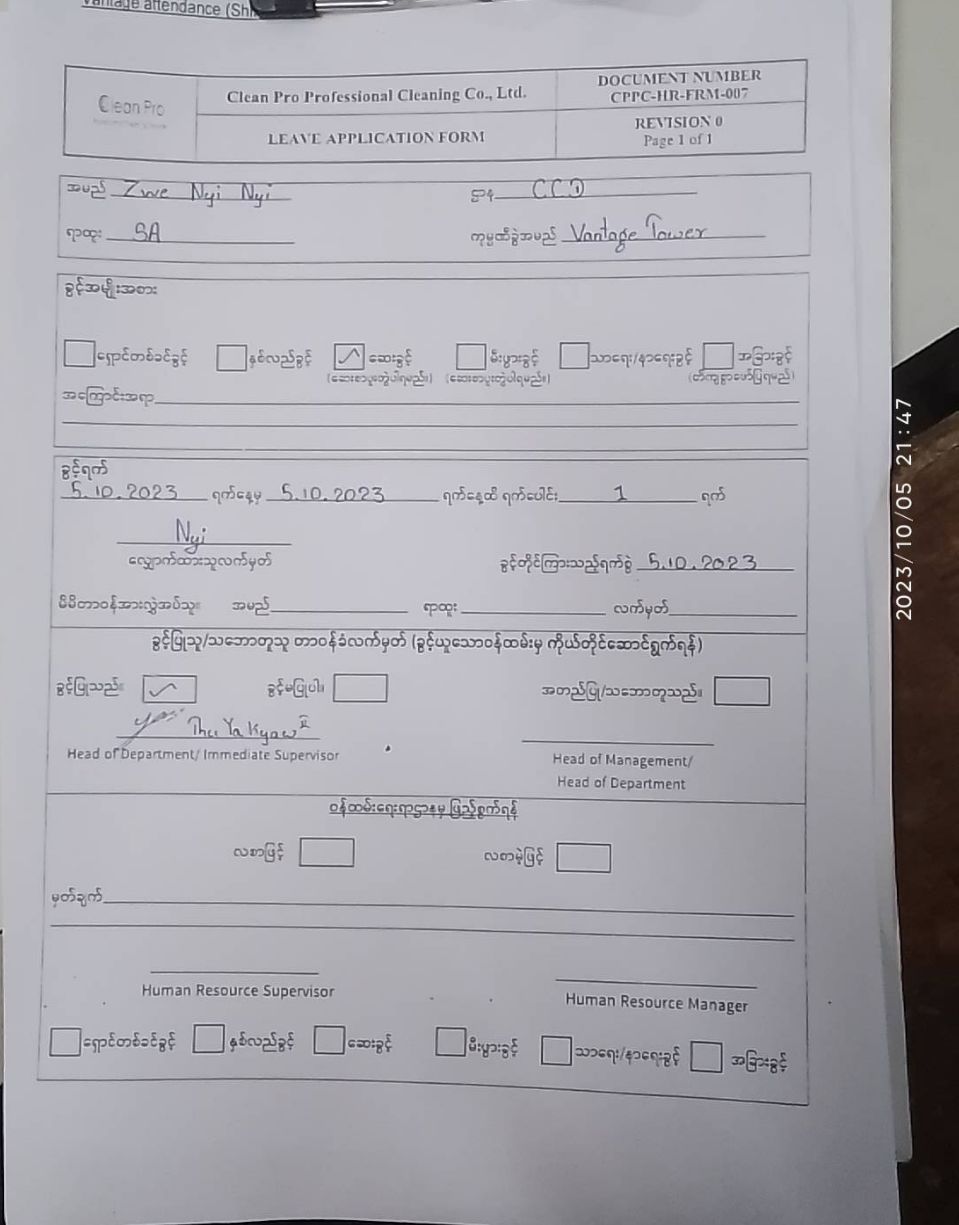 Vantage attendance
Clean Pro
Clean Pro Professional Cleaning Co., Ltd.
LEAVE APPLICATION FORM
DOCUMENT NUMBER
CPPC-HR-FRM-007
REVISION 0
Page 1 of 1
အမည် Zwe Nyi Nyi ဌာန
ရာထူး SA ကုမ္ပဏီခွဲအမည် Vantage Tower
ခွင့်အမျိုးအစား
ရှောင်တခင်ခွင့် နှစ်လည်ခွင့် ဆေးခွင့် မီးဖွားခွင့် သာရေး/နာရေးခွင့် အခြားခွင့်
(ဆေးစာပူးတွဲပါရမည်။) (ဆေးစာပူးတွဲပါရမည်။) (တိကျစွာဖော်ပြရမည်)
အကြောင်းအရာ
ခွင့်ရက်
5.10.2023 ရက်နေ့မှ 5.10.2023 ရက်နေ့ထိ ရက်ပေါင်း 1 ရက်
Nyi
လျှောက်ထားသူလက်မှတ် ခွင့်တိုင်ကြားသည့်ရက်စွဲ 5.10.2023
မိမိတာဝန်အားလွှဲအပ်သူ။ အမည် ရာထူး လက်မှတ်
ခွင့်ပြုသူ/သဘောတူသူ တာဝန်ခံလက်မှတ် (ခွင့်ယူသောဝန်ထမ်းမှ ကိုယ်တိုင်ဆောင်ရွက်ရန်)
ခွင့်ပြုသည်။ ခွင့်မပြုပါ။ အတည်ပြု/သဘောတူသည်။
Thu Ya Kyaw
Head of Department/ Immediate Supervisor
Head of Management/
Head of Department
ဝန်ထမ်းရေးရာဌာနမှ ဖြည့်စွက်ရန်
လစာဖြင့် လစာမဲ့ဖြင့်
မှတ်ချက်
Human Resource Supervisor
Human Resource Manager
ရှောင်တခင်ခွင့် နှစ်လည်ခွင့် ဆေးခွင့် မီးဖွားခွင့် သာရေး/နာရေးခွင့် အခြားခွင့်
2023/10/05 21:47